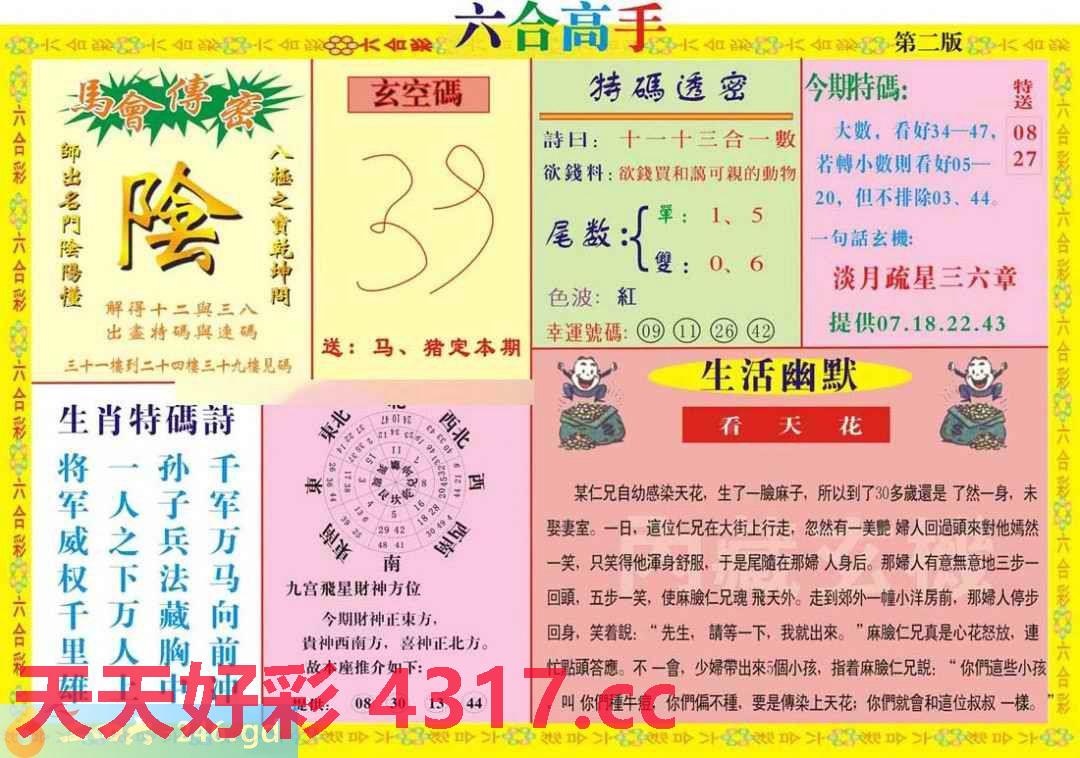 六合高手
第二版
馬會傳密
師出名門陰陽懂
陰
八極之寶乾坤問
解得十二與三八
出盡特碼與連碼
三十一樓到二十四樓三十九樓見碼
玄空碼
送：马、猪定本期
特碼透密
詩曰：十一十三合一數
欲錢料：欲錢買和藹可親的動物
尾数：
單：1、5
雙：0、6
色波：紅
幸運號碼：09 11 26 42
今期特碼：
特送
08
27
大數，看好34—47，
若轉小數則看好05—
20，但不排除03、44。
一句話玄機：
淡月疏星三六章
提供07.18.22.43
生肖特碼詩
千军万马向前冲
孙子兵法藏胸中
一人之下万人上
将军威权千里雄
東北
北
西北
東
西
東南
南
西南
九宫飛星財神方位
今期財神正東方，
貴神西南方，喜神正北方。
故本座推介如下：
提供：08 30 13 44
生活幽默
看天花
某仁兄自幼感染天花，生了一臉麻子，所以到了30多歲還是 了然一身，未
娶妻室。一日，這位仁兄在大街上行走，忽然有一美艷 婦人回過頭來對他嫣然
一笑，只笑得他渾身舒服，于是尾隨在那婦 人身后。那婦人有意無意地三步一
回頭，五步一笑，使麻臉仁兄魂 飛天外。走到郊外一幢小洋房前，那婦人停步
回身，笑着說：“先生，請等一下，我就出來。”麻臉仁兄真是心花怒放，連
忙點頭答應。不 一會，少婦帶出來5個小孩，指着麻臉仁兄說：“你們這些小孩
，叫 你們種牛痘，你們偏不種，要是傳染上天花；你們就會和這位叔叔 一樣。”
天天好彩 4317.cc